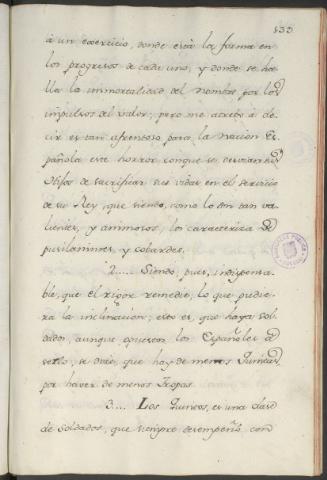 133
à un exercicio, donde esta la forma en
los progresos de cada uno, y donde se ha-
lla la immortalidad del nombre por los
impulsos del valor; pero me atrebo à de-
cir es tan afrentoso para la Nacion Es-
pañola este horror conque se desvian sus
Hijos de sacrificar sus vidas en el servicio
de su Rey, que siendo, como lo son tan va-
lientes, y animosos, los caracteriza de
pusilanimes, y cobardes.
2.... Siendo, pues, indispensa-
ble, que el rigor remedie, lo que pudie-
ra la inclinacion; esto es, que haya sol-
dados, aunque opuestos los Españoles à
serlo, se dirà, que hay de menos Quintas
por haver de menos Tropas.
3.... Los Quintos, es una clase
de Soldados, que siempre desempeño con